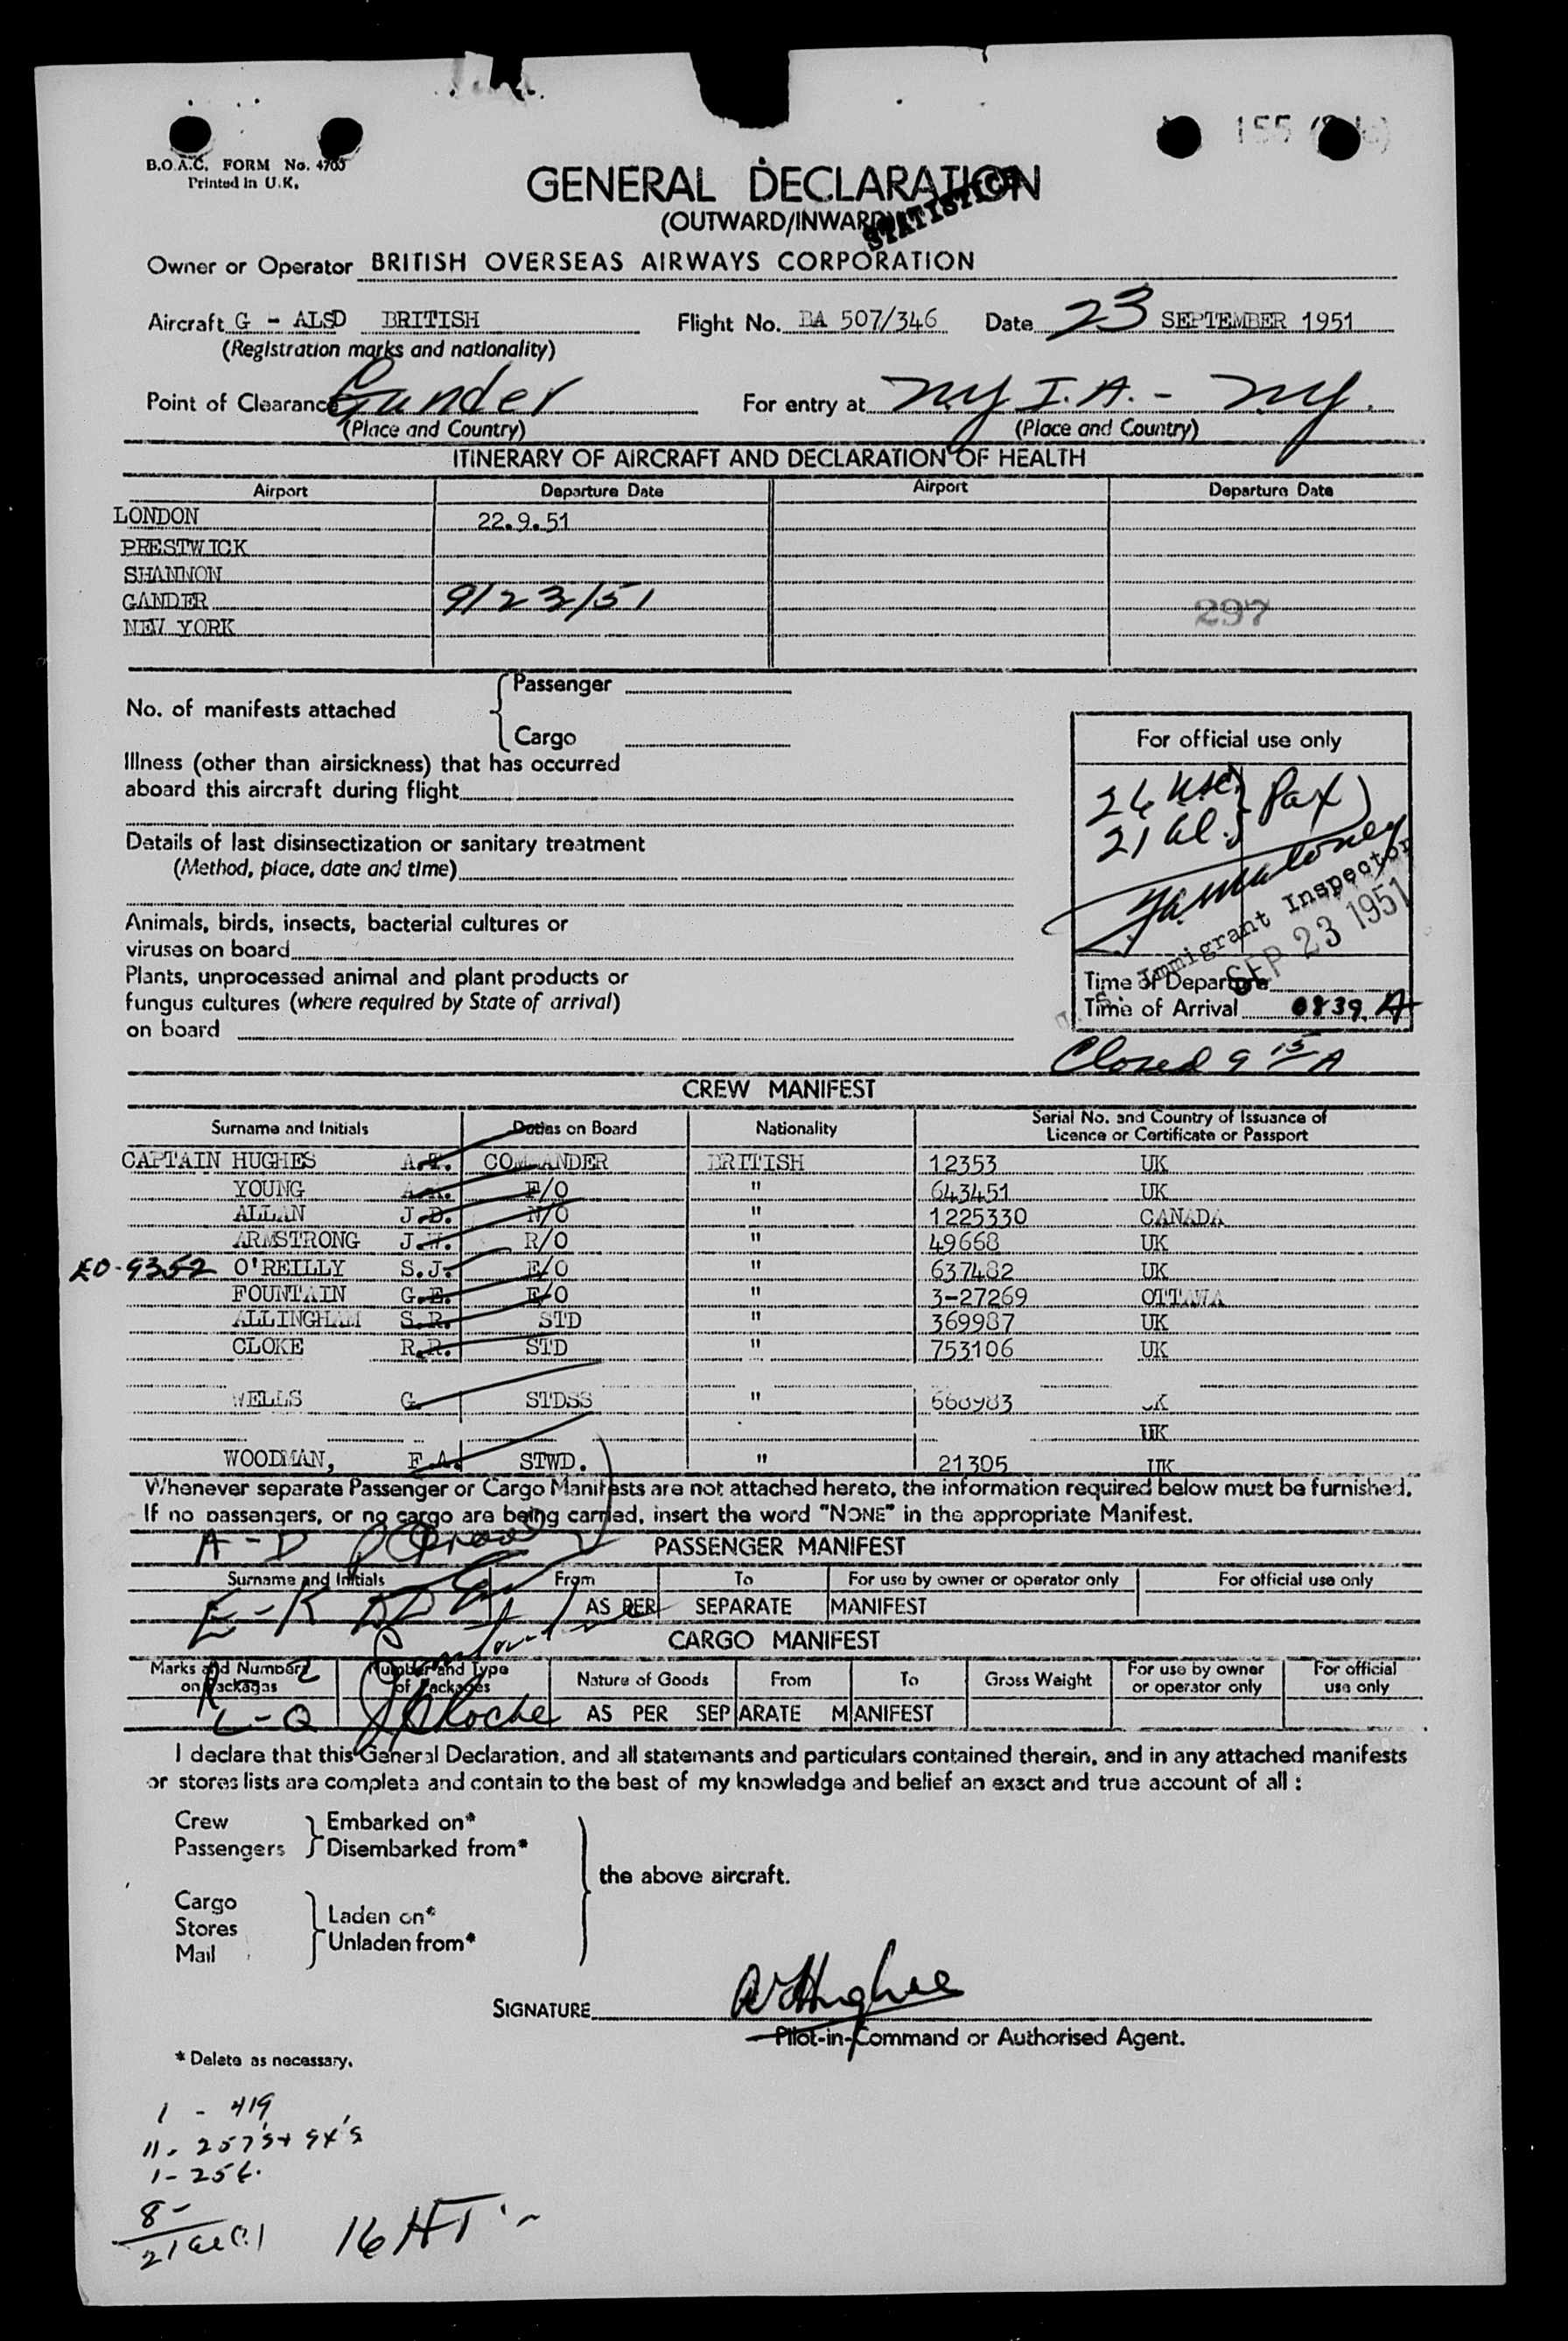 155
B.O.A.C. FORM No. 4703
Printed in U.K.
GENERAL DECLARATION
(OUTWARD/INWARD)
STATISTICS
Owner or Operator BRITISH OVERSEAS AIRWAYS CORPORATION
Aircraft G - ALSD BRITISH Flight No. BA 507/346 Date 23 SEPTEMBER 1951
(Registration marks and nationality)
Point of Clearance Gander For entry at NY I.A. - NY.
(Place and Country) (Place and Country)
ITINERARY OF AIRCRAFT AND DECLARATION OF HEALTH
Airport Departure Date Airport Departure Date
LONDON 22.9.51
PRESTWICK
SHANNON
GANDER 9/23/51 297
NEW YORK
No. of manifests attached { Passenger
Cargo
Illness (other than airsickness) that has occurred
aboard this aircraft during flight
Details of last disinsectization or sanitary treatment
(Method, place, date and time)
Animals, birds, insects, bacterial cultures or
viruses on board
Plants, unprocessed animal and plant products or
fungus cultures (where required by State of arrival)
on board
For official use only
26 USC } Pax
21 al.
Immigrant Inspector
SEP 23 1951
Time of Departure
Time of Arrival 0839 A
Closed 9 15 A
CREW MANIFEST
Surname and Initials Duties on Board Nationality Serial No. and Country of Issuance of Licence or Certificate or Passport
CAPTAIN HUGHES A.T. COMMANDER BRITISH 12353 UK
YOUNG A.R. F/O " 643451 UK
ALLAN J.D. N/O " 1225330 CANADA
ARMSTRONG J.W. R/O " 49668 UK
ED-9352 O'REILLY S.J. E/O " 637482 UK
FOUNTAIN G.E. E/O " 3-27269 OTTAWA
ALLINGHAM S.R. STD " 369987 UK
CLOKE R.R. STD " 753106 UK
WELLS G. STDSS " 668983 UK
UK
WOODMAN, F.A. STWD. " 21305 UK
Whenever separate Passenger or Cargo Manifests are not attached hereto, the information required below must be furnished.
If no passengers, or no cargo are being carried, insert the word "NONE" in the appropriate Manifest.
A-D
PASSENGER MANIFEST
Surname and Initials From To For use by owner or operator only For official use only
E-K
AS PER SEPARATE MANIFEST
CARGO MANIFEST
Marks and Numbers on Packages Number and Type of Packages Nature of Goods From To Gross Weight For use by owner or operator only For official use only
R-Z
L-Q J Roche AS PER SEPARATE MANIFEST
I declare that this General Declaration, and all statements and particulars contained therein, and in any attached manifests
or stores lists are complete and contain to the best of my knowledge and belief an exact and true account of all :
Crew } Embarked on*
Passengers } Disembarked from*
the above aircraft.
Cargo
Stores } Laden on*
Mail } Unladen from*
SIGNATURE A Hughes
Pilot-in-Command or Authorised Agent.
* Delete as necessary.
1 - 419
11 - 257's + 9x's
1 - 256.
8 -
21
16 HT